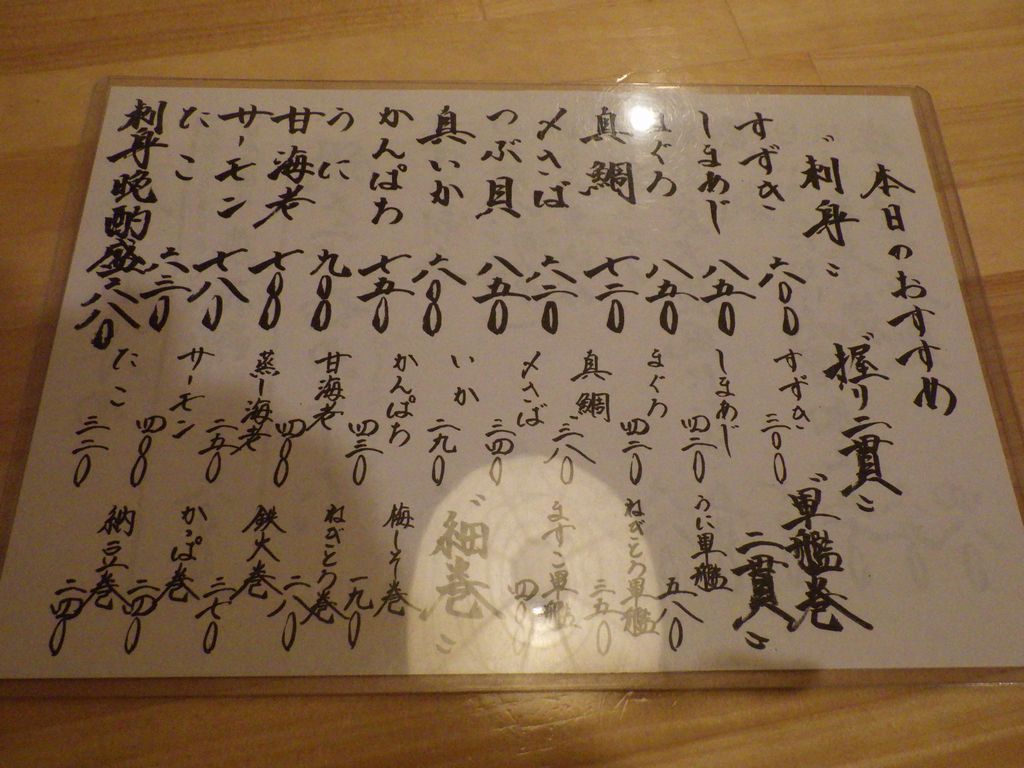 本日のおすすめ
〝刺身〟
すずき 六〇〇
しまあじ 八五〇
まぐろ 八五〇
真鯛 七二〇
〆さば 六二〇
つぶ貝 八五〇
真いか 六八〇
かんぱち 七五〇
うに 九〇〇
甘海老 七〇〇
サーモン 七八〇
たこ 六三〇
刺身晩酌盛 八八〇
握り二貫〟
すずき 三〇〇
しまあじ 四二〇
まぐろ 四二〇
真鯛 三八〇
〆さば 三四〇
いか 二九〇
かんぱち 四三〇
甘海老 四〇〇
蒸し海老 二五〇
サーモン 四〇〇
たこ 三二〇
〝軍艦巻
二貫〟
うに軍艦 五八〇
ねぎとろ軍艦 三五〇
ますこ軍艦 四〇〇
〝細巻〟
梅しそ巻 一九〇
ねぎとろ巻 二八〇
鉄火巻 三七〇
かっぱ巻 二四〇
納豆巻 二四〇